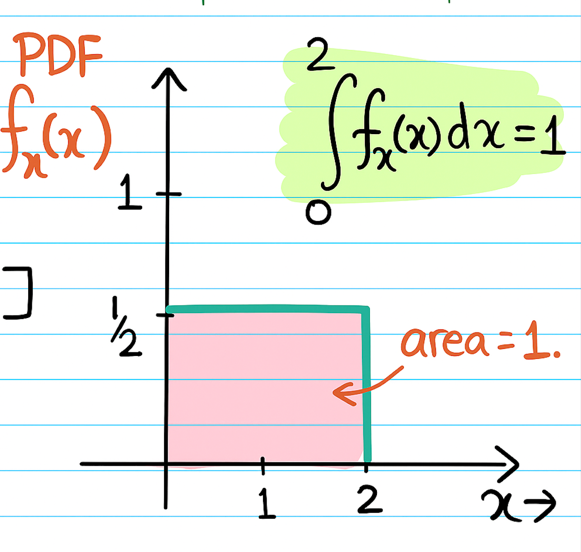 PDF
fₓ(x)
2
∫ fₓ(x) dx = 1
0
1
]
1/2
area = 1.
1 2
x →